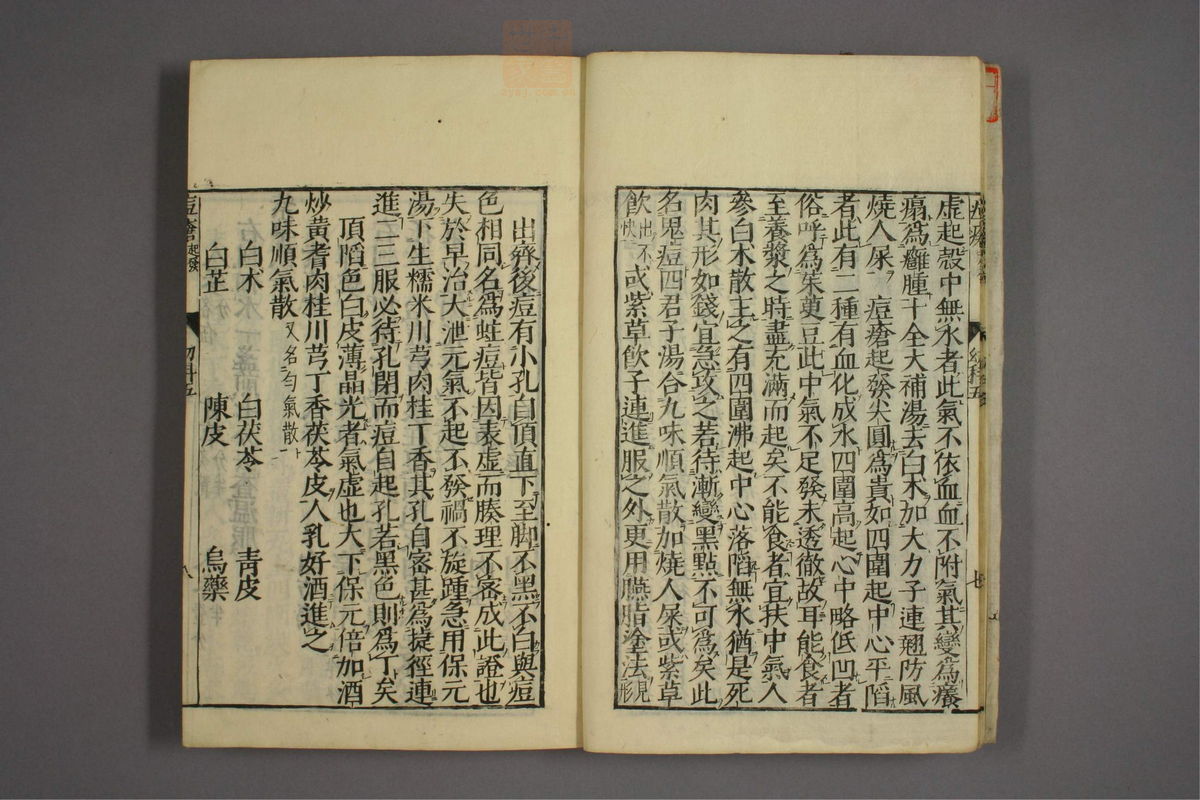 虛起殼中無水者此氣不依血血不附氣其變爲癢
瘑爲癰腫十全大補湯去白术加大力子連翹防風
燒人屎 痘瘡起發尖圓爲貴如四圍起中心平陷
者此有二種有血化成水四圍高起心中略低凹者
俗呼爲茱萸豆此中氣不足發未透徹故耳能食者
至養漿之時盡充滿而起矣不能食者宜扶中氣人
參白术散主之有四圍沸起中心落陷無水猶是死
肉其形如錢宜急攻之若待漸變黑點不可爲矣此
名鬼痘四君子湯合九味順氣散加燒人屎或紫草
飲出不快或紫草飲子連進服之外更用臙脂塗法見形
出齊後痘有小孔自頂直下至脚不黑不白與痘
色相同名爲蛀痘皆因表虛而腠理不密成此證也
失於早治大泄元氣不起不發禍不旋踵急用保元
湯下生糯米川芎肉桂丁香其孔自密甚爲捷徑連
進二三服必待孔閉而痘自起孔若黑色則爲丁矣
頂陷色白皮薄晶光者氣虛也大下保元倍加酒
炒黃耆肉桂川芎丁香茯苓皮人乳好酒進之
九味順氣散又名勻氣散
白术 白茯苓 靑皮
白芷 陳皮 烏藥
痘瘡起發 幼科五 八